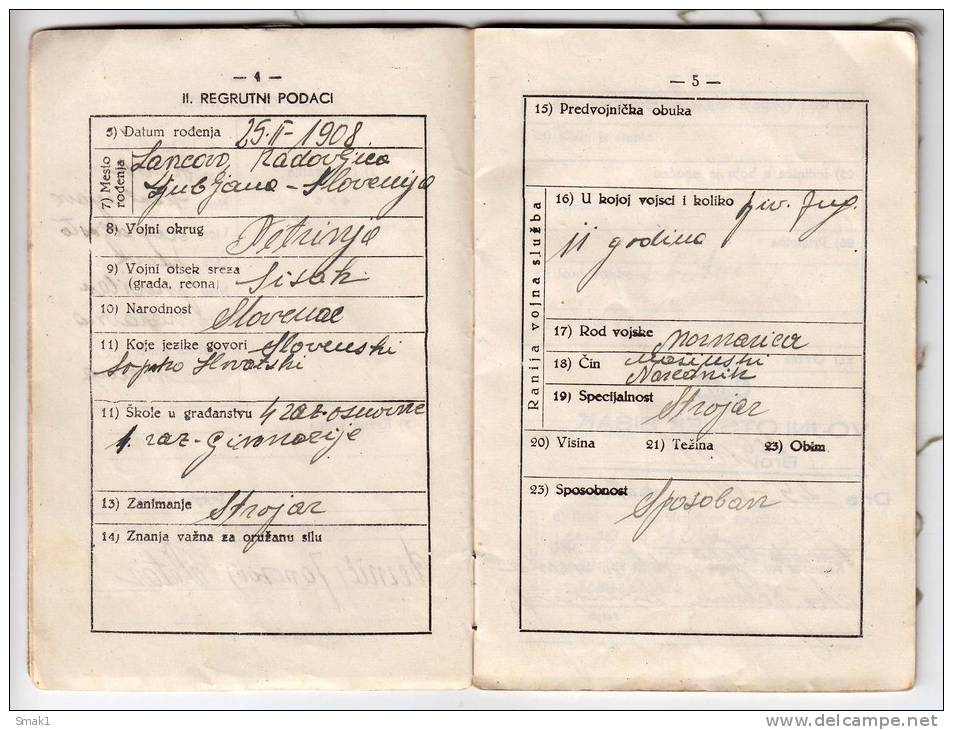 — 4 —
II. REGRUTNI PODACI
5) Datum rođenja 25-II-1908
7) Mesto rođenja
Lancovo, Radovljica
Ljubljana - Slovenija
8) Vojni okrug Petrinja
9) Vojni otsek sreza
(grada, reona) Sisak
10) Narodnost Slovenac
11) Koje jezike govori Slovenski
Srpsko Hrvatski
11) Škole u građanstvu 4 raz. osnovne
1. raz. Gimnazije
13) Zanimanje Strojar
14) Znanja važna za oružanu silu
— 5 —
15) Predvojnička obuka
Ranija vojna služba
16) U kojoj vojsci i koliko biv. Jug.
11 godina
17) Rod vojske Mornarica
18) Čin Mašinski
Narednik
19) Specijalnost Strojar
20) Visina 21) Težina 23) Obim
23) Sposobnost Sposoban
Smak1
www.delcampe.net